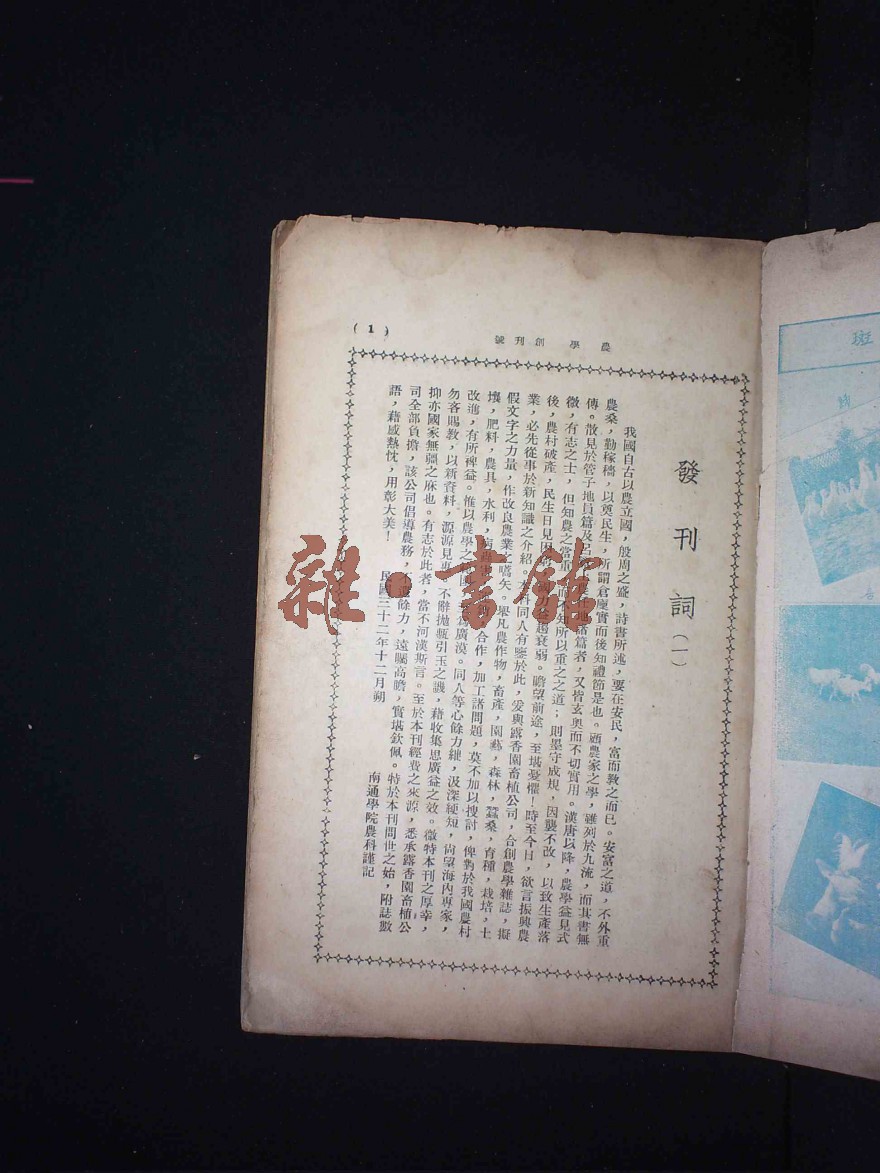 農學創刊號
(1)
發刊詞(一)
我國自古以農立國,殷周之盛,詩書所述,要在安民,富而敎之而已。安富之道,不外重
農桑,勤稼穡,以奠民生,所謂倉廩實而後知禮節是也。顧農家之學,雖列於九流,而其書無
傳。散見於管子地員篇及呂 地諸篇者,又皆玄奧而不切實用。漢唐以降,農學益見式
微,有志之士,但知農之當重,而不知所以重之之道;則墨守成規,因襲不改,以致生產落
後,農村破產,民生日見困 趨衰弱。瞻望前途,至堪憂懼!時至今日,欲言振興農
業,必先從事於新知識之介紹。本科同人有鑒於此,爰與露香園畜植公司,合創農學雜誌,擬
假文字之力量,作改良農業之嚆矢。舉凡農作物,畜產,園藝,森林,蠶桑,育種,栽培,土
壤,肥料,農具,水利,病 合作,加工諸問題,莫不加以搜討,俾對於我國農村
改進,有所裨益。惟以農學之範圍, 爲廣漠。同人等心餘力絀,汲深綆短,尙望海內專家,
勿吝賜敎,以新資料,源源見惠,不辭拋甎引玉之譏,藉收集思廣益之效。微特本刊之厚幸,
抑亦國家無疆之庥也。有志於此者,當不河漢斯言。至於本刊經費之來源,悉承露香園畜植公
司全部負擔,該公司倡導農務, 餘力,遠矚高瞻,實堪欽佩。特於本刊問世之始,附誌數
語,藉感熱忱,用彰大美!
民國三十二年十二月朔
南通學院農科謹記
雜·書館
斑